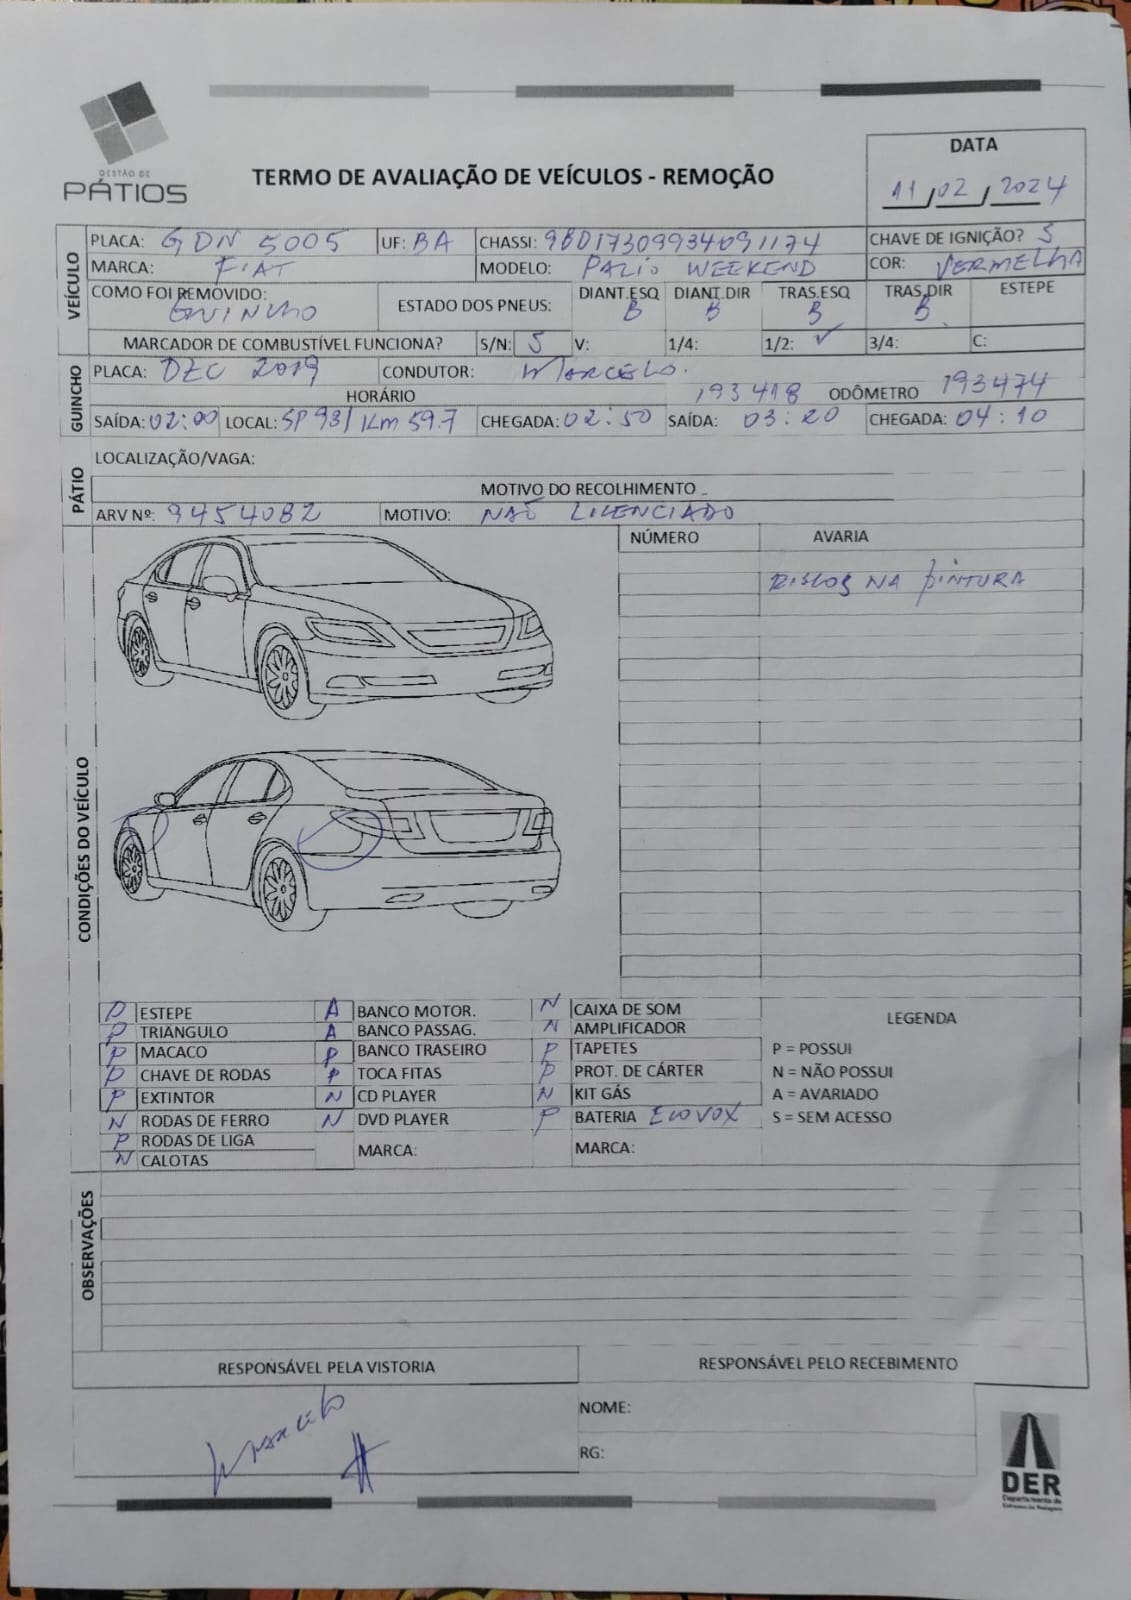 GESTÃO DE
PÁTIOS
TERMO DE AVALIAÇÃO DE VEÍCULOS - REMOÇÃO
DATA
11/02/2024
VEÍCULO
PLACA: GDN 5005 UF: BA CHASSI: 9BD17309934091174 CHAVE DE IGNIÇÃO? S
MARCA: FIAT MODELO: PALIO WEEKEND COR: VERMELHA
COMO FOI REMOVIDO: GUINCHO ESTADO DOS PNEUS: DIANT.ESQ B DIANT.DIR B TRAS.ESQ B TRAS.DIR B ESTEPE
MARCADOR DE COMBUSTÍVEL FUNCIONA? S/N: S V: 1/4: 1/2: ✓ 3/4: C:
GUINCHO
PLACA: DZC 2019 CONDUTOR: MARCELO.
HORÁRIO 193418 ODÔMETRO 193474
SAÍDA: 02:00 LOCAL: SP 93/ Km 59.7 CHEGADA: 02:50 SAÍDA: 03:20 CHEGADA: 04:10
PÁTIO
LOCALIZAÇÃO/VAGA:
MOTIVO DO RECOLHIMENTO
ARV Nº: 9454082 MOTIVO: NAÕ LICENCIADO
CONDIÇÕES DO VEÍCULO
NÚMERO AVARIA
RISCOS NA PINTURA
P ESTEPE A BANCO MOTOR. N CAIXA DE SOM LEGENDA
P TRIÂNGULO A BANCO PASSAG. N AMPLIFICADOR
P MACACO P BANCO TRASEIRO P TAPETES P = POSSUI
P CHAVE DE RODAS P TOCA FITAS P PROT. DE CÁRTER N = NÃO POSSUI
P EXTINTOR N CD PLAYER N KIT GÁS A = AVARIADO
N RODAS DE FERRO N DVD PLAYER P BATERIA ECOVOX S = SEM ACESSO
P RODAS DE LIGA MARCA: MARCA:
N CALOTAS
OBSERVAÇÕES
RESPONSÁVEL PELA VISTORIA RESPONSÁVEL PELO RECEBIMENTO
Marcelo
NOME:
RG:
DER